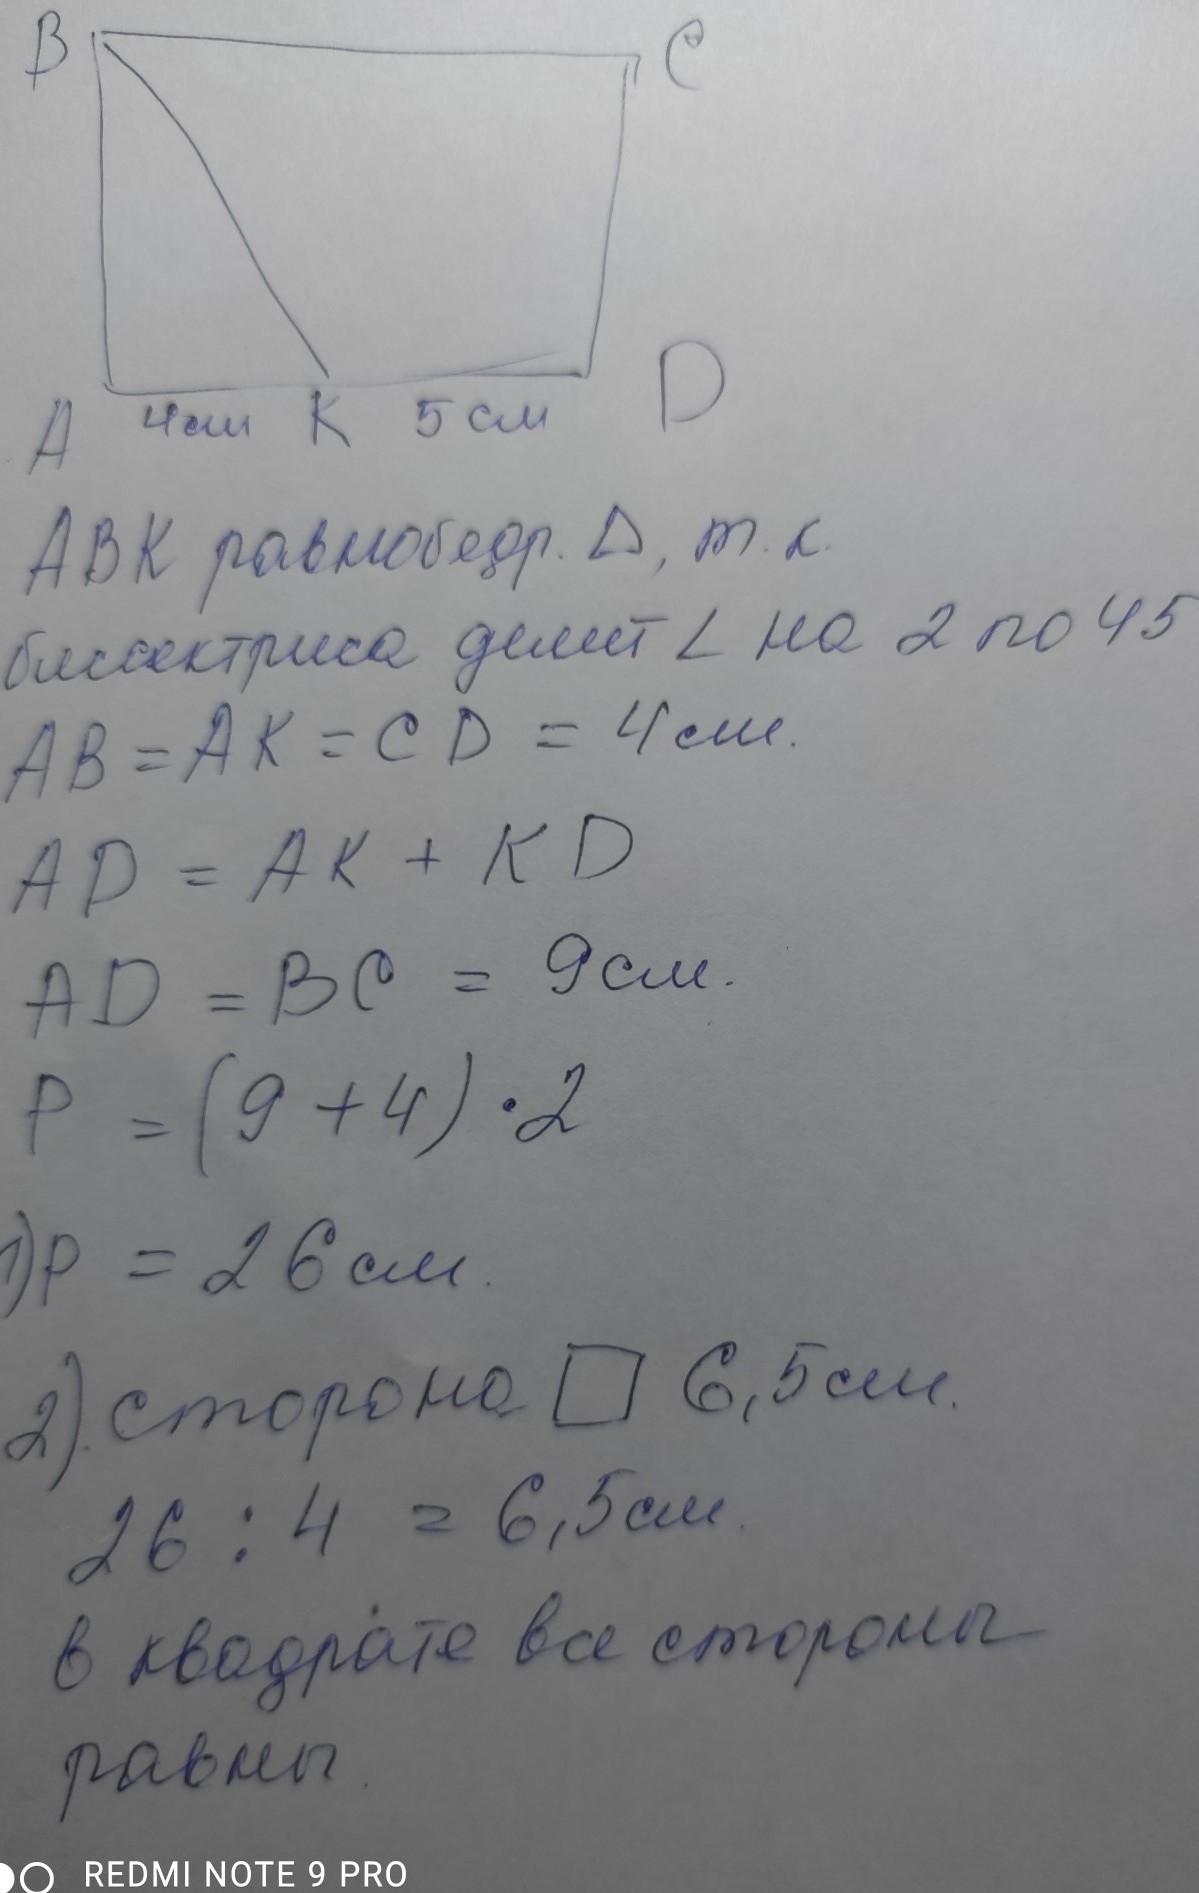 B C
A 4см K 5см D
ABK равнобедр. Δ, т.к.
биссектриса делит ∠ на 2 по 45
AB = AK = CD = 4см.
AD = AK + KD
AD = BC = 9см.
P = (9 + 4) · 2
1) P = 26см.
2). сторона □ 6,5см.
26 : 4 = 6,5см.
в квадрате все стороны
равны.
REDMI NOTE 9 PRO